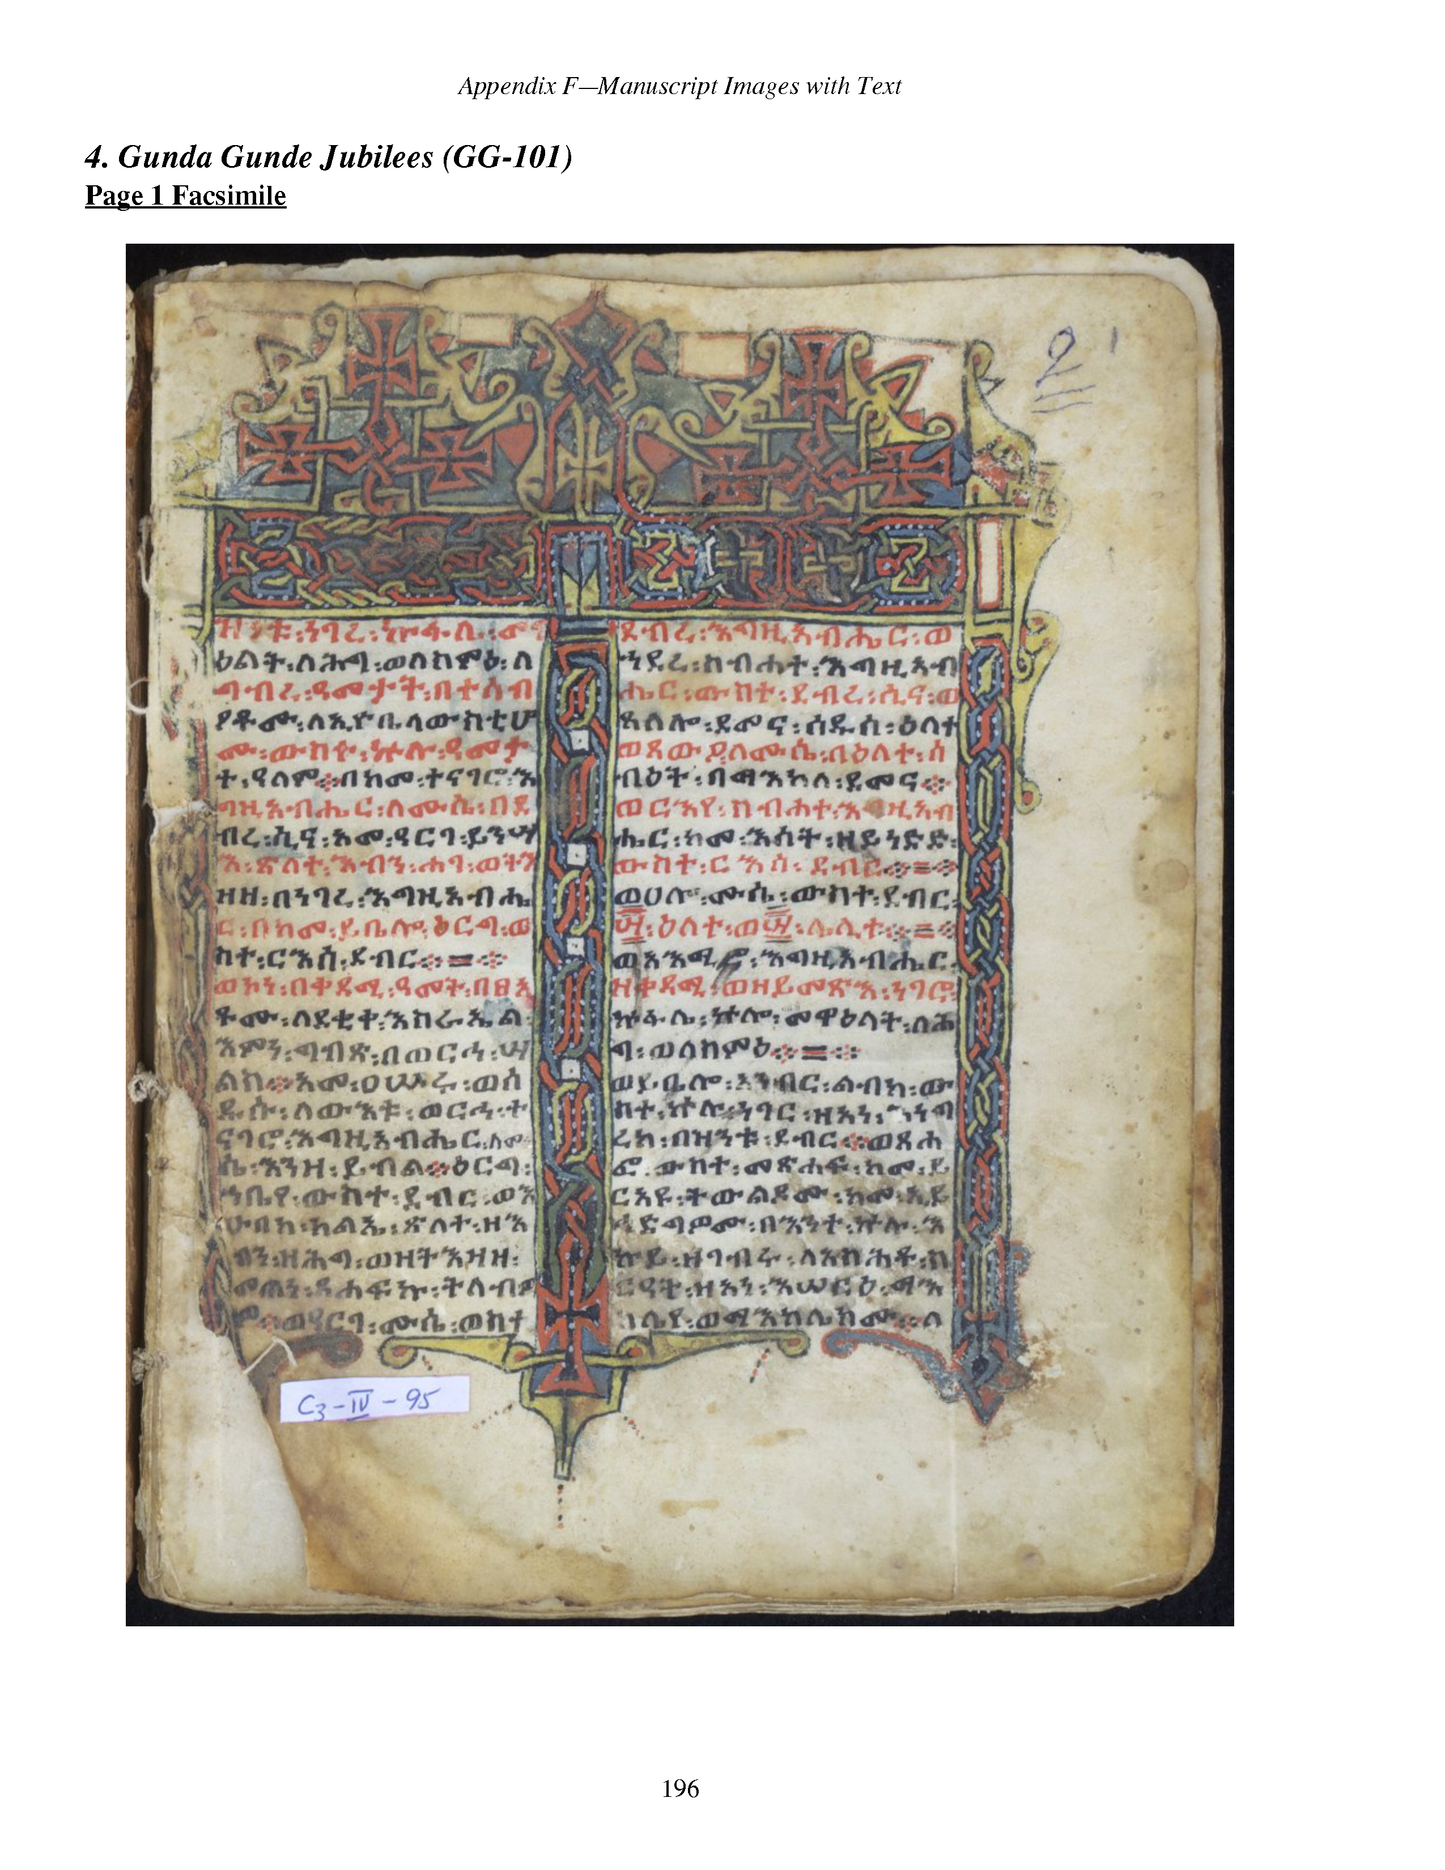 Appendix F—Manuscript Images with Text
4. Gunda Gunde Jubilees (GG-101)
Page 1 Facsimile
2 1
ዝንቱ፡ነገረ፡ኵፋሌ፡
ዕልት፡ለሕግ፡ወለስምዕ፡ለ
ግብረ፡ዓመታት፡በተሰብ
ዖቶሙ፡ለኢዮቤላውስቲሆ
ሙ፡ውስተ፡ኵሉ፡ዓመታ
ተ፡ዓለም፨በከመ፡ተናገሮ፡እ
ግዚአብሔር፡ለሙሴ፡በደ
ብረ፡ሲና፡አመ፡ዓርገ፡ይንሣ
እ፡ጽላተ፡እብን፡ሐገ፡ወትእ
ዘዘ፡በነገረ፡እግዚአብሔ
ር፡በከመ፡ይቤሎ፡ዕርግ፡ው
ስተ፡ርእሰ፡ደብር፨=፨
ወኮነ፡በቀዳሚ፡ዓመት፡በፀአ
ቶሙ፡ለደቂቀ፡እስራኤል፡
እምነ፡ግብጽ፡በወርኅ፡ሣ
ልስ፨አመ፡ዐሡሩ፡ወሰ
ዱሱ፡ለውእቱ፡ወርኅ፡ተ
ናገሮ፡እግዚአብሔር፡ለሙ
ሴ፡እንዘ፡ይብል፨ዕርግ፡
ኀቤየ፡ውስተ፡ደብር፡ወእ
ሁበከ፡ክልኤ፡ጽላተ፡ዘእ
ብን፡ዘሕግ፡ወዘትእዛዝ፡
መጠነ፡ጸሐፍኩ፡ትለብዎ
ሙ፡ወዓርገ፡ሙሴ፡ውስተ
ደብረ፡እግዚአብሔር፡ወ
ኀደረ፡ስብሐተ፡እግዚአብ
ሔር፡ውስተ፡ደብረ፡ሲና፡ወ
ጸለሎ፡ደመና፡ሰዱሰ፡ዕለተ
ወጸውዖ፡ለሙሴ፡በዕለተ፡ሰ
ብዕት፡በማእከለ፡ደመና፨
ወርእየ፡ስብሐተ፡እግዚአብ
ሔር፡ከመ፡እሳት፡ዘይነድድ፡
ውስተ፡ርእሰ፡ደብር፨=፨
ወሀሎ፡ሙሴ፡ውስተ፡ደብር፡
፵፡ዕለተ፡ወ፵፡ሌሊተ፨=፨
ወአእመሮ፡እግዚአብሔር፡
ዘቀዳሚ፡ወዘይመጽእ፡ነገሮ፡
ኵፋሌ፡ኵሎ፡መዋዕላት፡ለሕ
ግ፡ወለስምዕ፨=፨
ወይቤሎ፡አንብር፡ልብከ፡ው
ስተ፡ኵሉ፡ነገር፡ዘአነ፡እነግ
ረከ፡በዝንቱ፡ደብር፨ወጸሐ
ፎ፡ውስተ፡መጽሐፍ፡ከመ፡ይ
ርአዩ፡ትውልዶሙ፡ከመ፡ኢይ
ኀድግዎሙ፡በእንተ፡ኵሉ፡እ
ኩይ፡ዘገብሩ፡ለአስሕቶ፡ስ
ርዓት፡ዘአነ፡እሠርዕ፡ማእ
ከሌየ፡ወማእከሌከሙ፡ለ
C3-IV-95
196